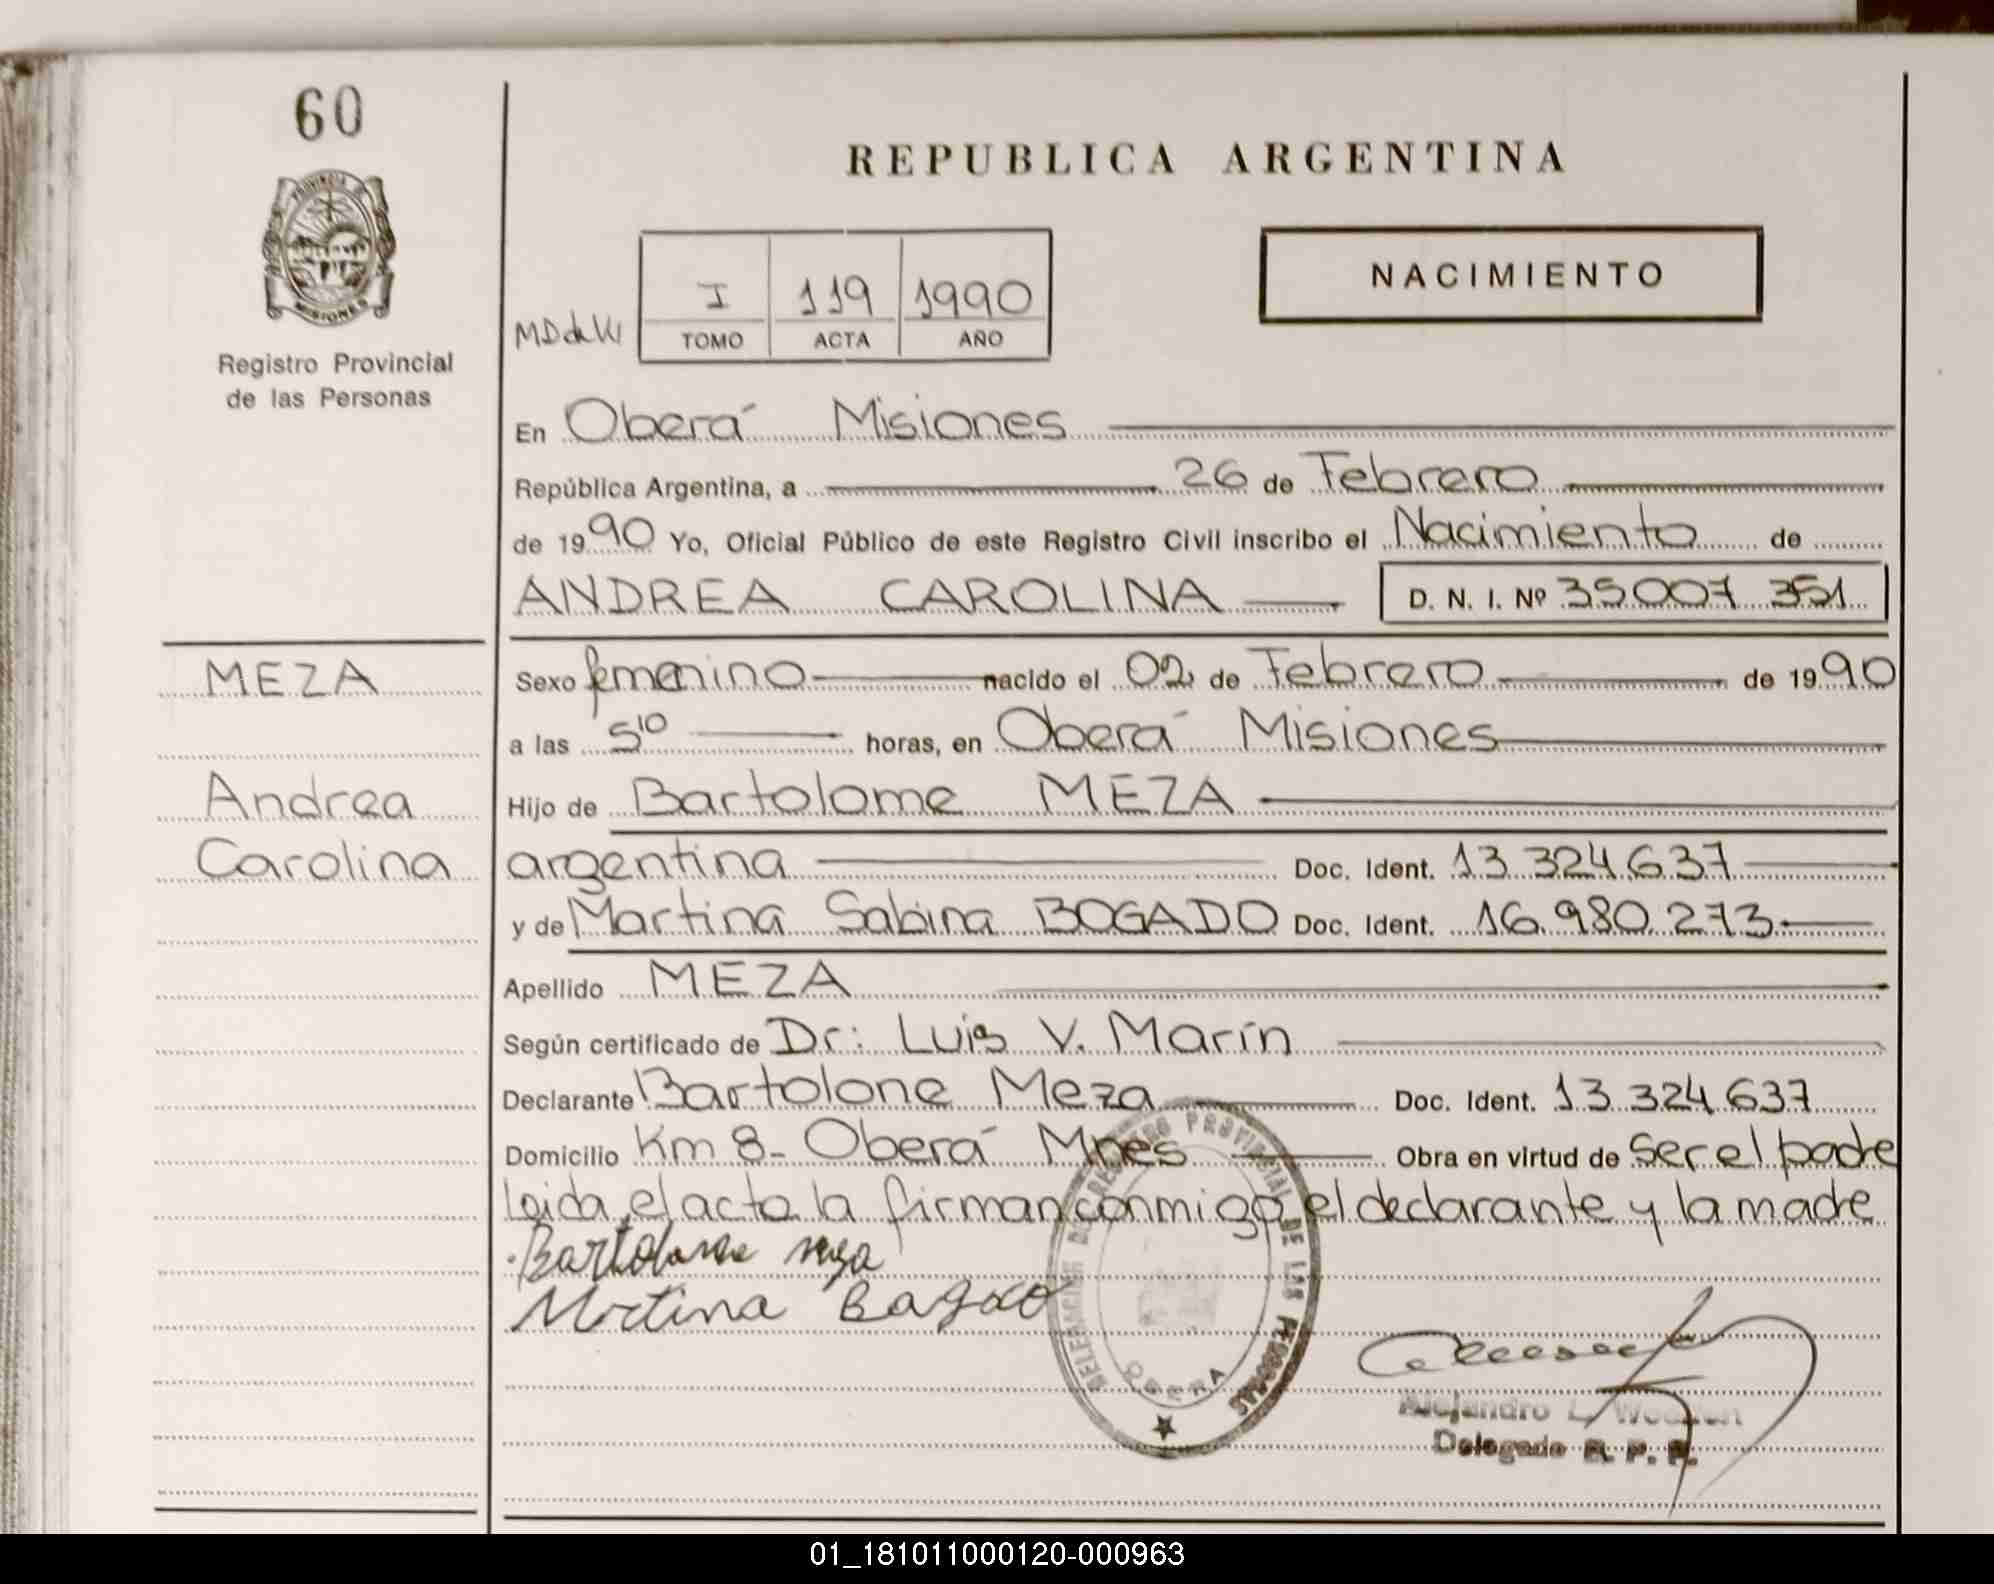 60
PROVINCIA D
MISIONES
Registro Provincial
de las Personas
REPUBLICA ARGENTINA
NACIMIENTO
I 119 1990
TOMO ACTA AÑO
En Oberá Misiones
República Argentina, a 26 de Febrero
de 1990 Yo, Oficial Público de este Registro Civil inscribo el Nacimiento de
ANDREA CAROLINA D. N. I. Nº 35007 351
MEZA
Andrea
Carolina
Sexo femenino nacido el 02 de Febrero de 1990
a las 5 10 horas, en Oberá Misiones
Hijo de Bartolome MEZA
argentina Doc. Ident. 13 324 637
y de Martina Sabina BOGADO Doc. Ident. 16.980.273
Apellido MEZA
Según certificado de Dr: Luis V. Marín
Declarante Bartolone Meza Doc. Ident. 13 324 637
Domicilio Km 8- Oberá Mnes Obra en virtud de ser el padre
leida el acta la firman conmigo el declarante y la madre
Bartolome meza
Martina Bagado
DELEGACION DEL REGISTRO PROVINCIAL DE LAS PERSONAS
OBERA
Alejandro L.
Delegado R. P. P.
01_181011000120-000963